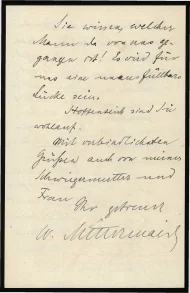 Sie wissen, welcher
Mann da von uns ge-
gangen ist! Es wird für
uns eine unausfüllbare
Lücke sein.
Hoffentlich sind Sie
wohlauf.
Mit verbindlichsten
Grüßen auch von meiner
Schwiegermutter und
Frau
Ihr getreuer
W. Mittermaier